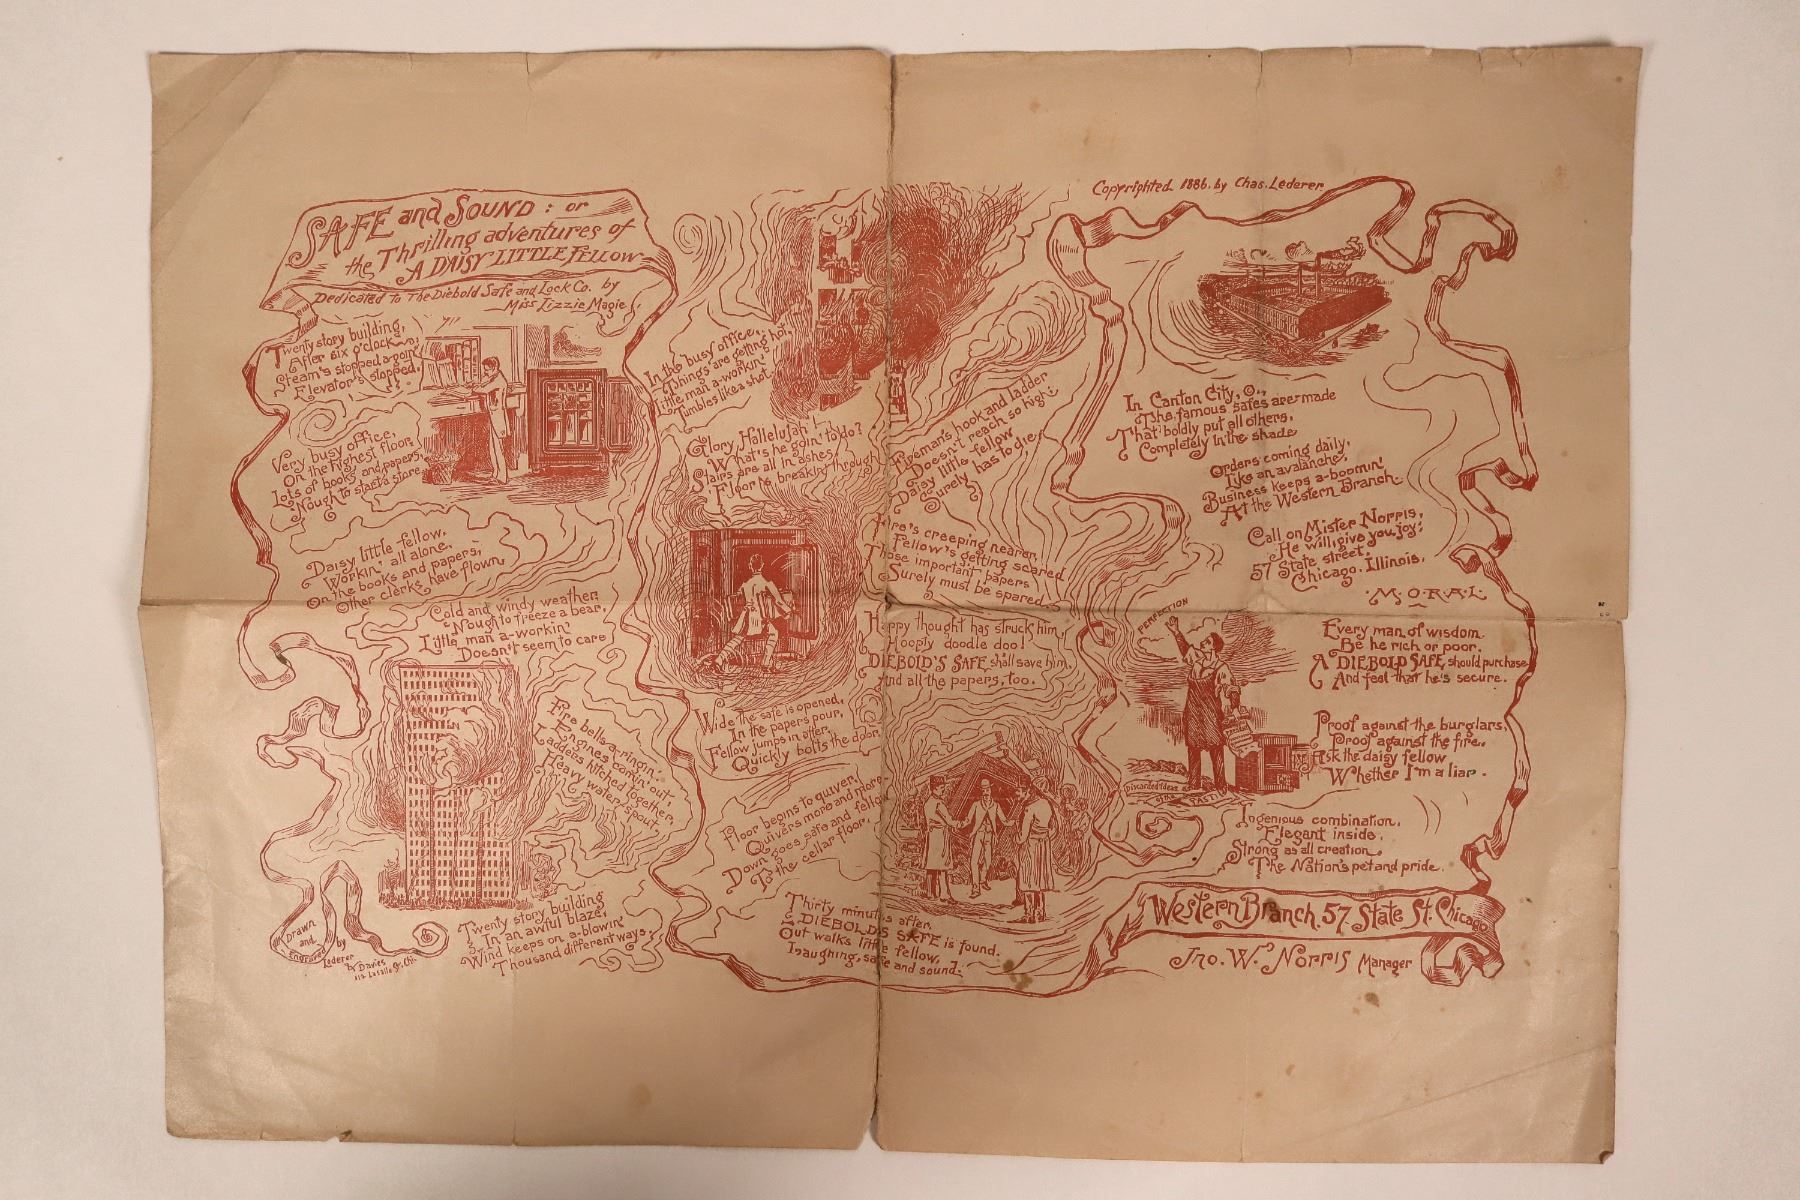 SAFE and SOUND: or
the Thrilling adventures of
A DAISY LITTLE FELLOW
Dedicated to The Diebold Safe and Lock Co. by
Miss Lizzie Magie
Twenty story building,
After six o'clock,
Steam's stopped a-goin'
Elevator's stopped.
Very busy office,
On the highest floor,
Lots of books and papers,
Nough to start a store.
Daisy little fellow,
Workin' all alone,
On the books and papers,
Other clerks have flown.
Cold and windy weather,
Nough to freeze a bear,
Little man a-workin'
Doesn't seem to care
Fire bells a-ringin'
Engines comin' out,
Ladders hitched together,
Heavy water-spout.
Twenty story building
In an awful blaze,
Wind keeps on a-blowin'
Thousand different ways.
Drawn
and
Engraved
by
Lederer
& Davies
LaSalle St. Chi.
In the busy office,
Things are getting hot,
Little man a-workin'
Tumbles like a shot.
Glory, Hallelujah!
What's he goin' to do?
Stairs are all in ashes,
Floor is breaking through.
Fireman's hook and ladder
Doesn't reach so high;
Daisy little fellow
Surely has to die.
Fire's creeping nearer,
Fellow's getting scared
Those important papers
Surely must be spared.
Happy thought has struck him,
Hooply doodle doo!
DIEBOLD'S SAFE shall save him,
And all the papers, too.
Wide the safe is opened,
In the papers pour,
Fellow jumps in after,
Quickly bolts the door.
Floor begins to quiver,
Quivers more and more
Down goes safe and fellow
To the cellar floor.
Thirty minutes after,
DIEBOLD'S SAFE is found.
Out walks little fellow,
Laughing, safe and sound.
Copyrighted 1886. by Chas. Lederer
In Canton City, O.,
The famous safes are made
That boldly put all others,
Completely in the shade
Orders coming daily,
Like an avalanche,
Business keeps a-boomin'
At the Western Branch.
Call on Mister Norris,
He will give you joy;
57 State street,
Chicago. Illinois.
M.O.R.A.L.
PERFECTION
Discarded Ideas
of the
PAST
Every man of wisdom.
Be he rich or poor.
A DIEBOLD SAFE should purchase
And feel that he's secure.
Proof against the burglars,
Proof against the fire,
Ask the daisy fellow
Whether I'm a liar.
Ingenious combination,
Elegant inside,
Strong as all creation
The Nation's pet and pride.
Western Branch. 57 State St. Chicago
Jno. W. Norris Manager